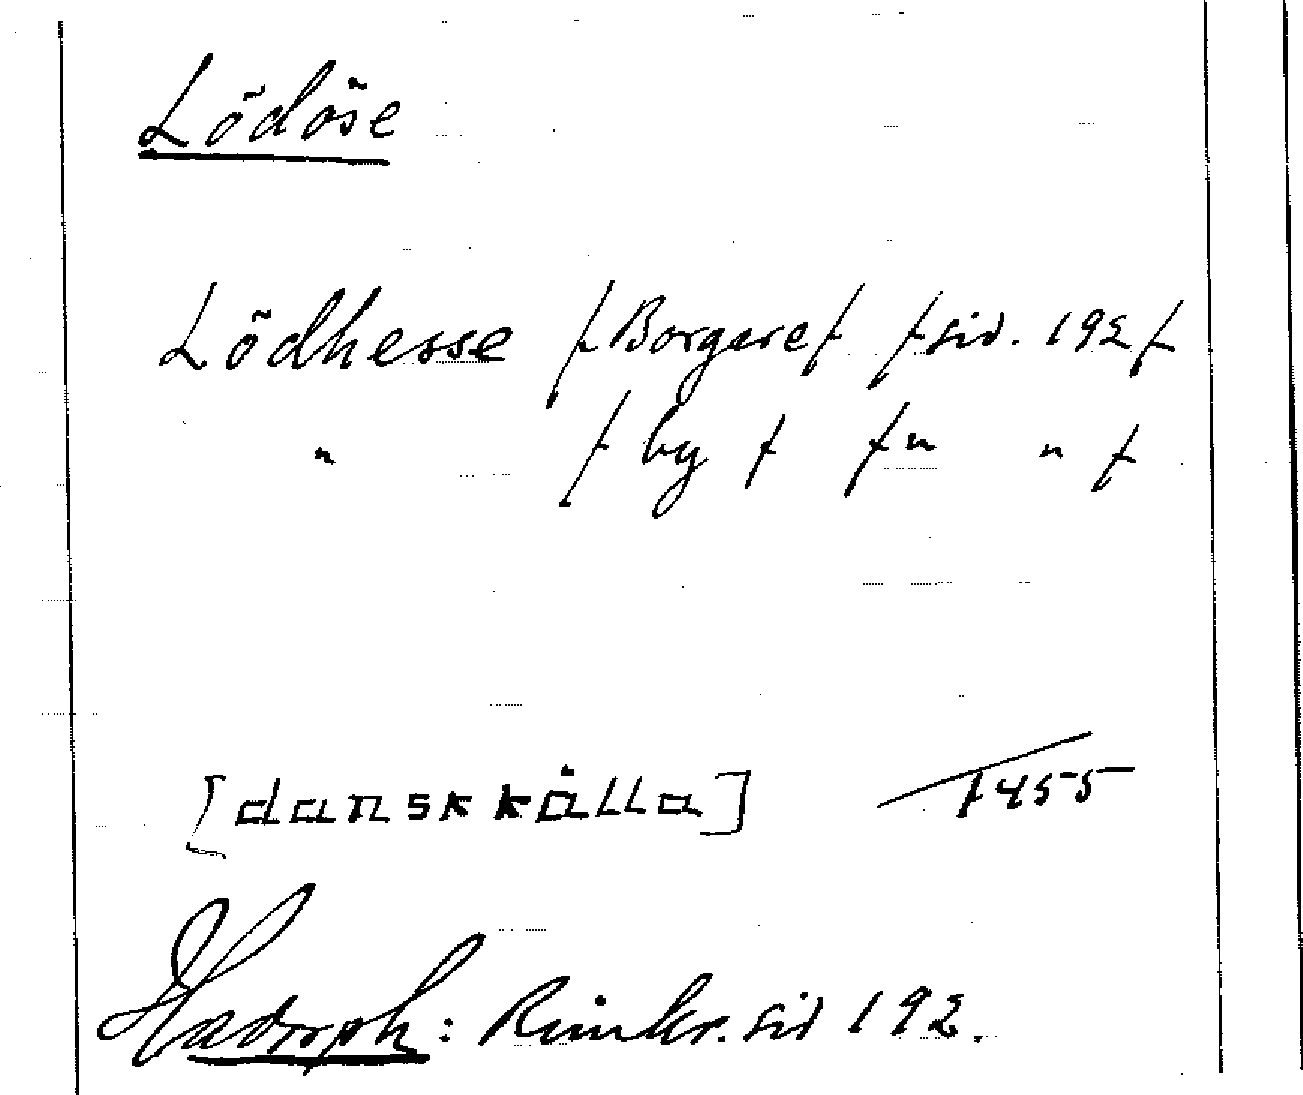 Lödöse
Lödhesse /Borgare/ /sid. 192/
" /by/ /" "/
[dansk källa] 1455
Hadorph: Rimkr. sid 192.